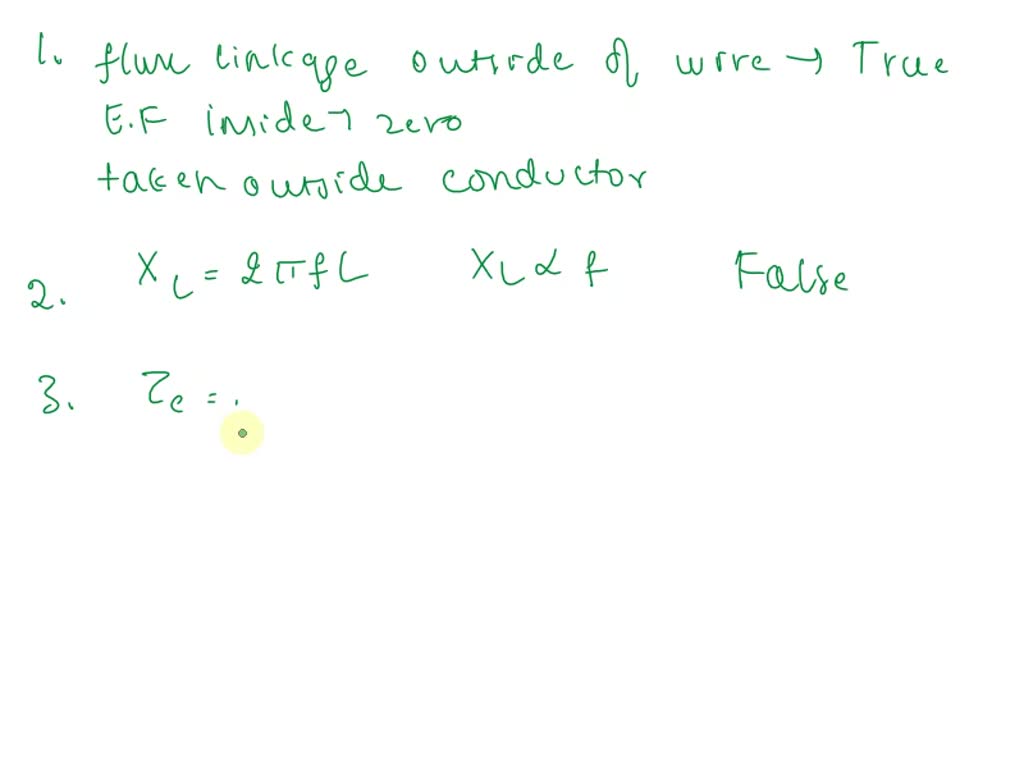 1. flux linkage outside of wire → True
E.F inside → zero
taken outside conductor
2. X_L = 2πfL X_L ∝ f False
3. Z_c =